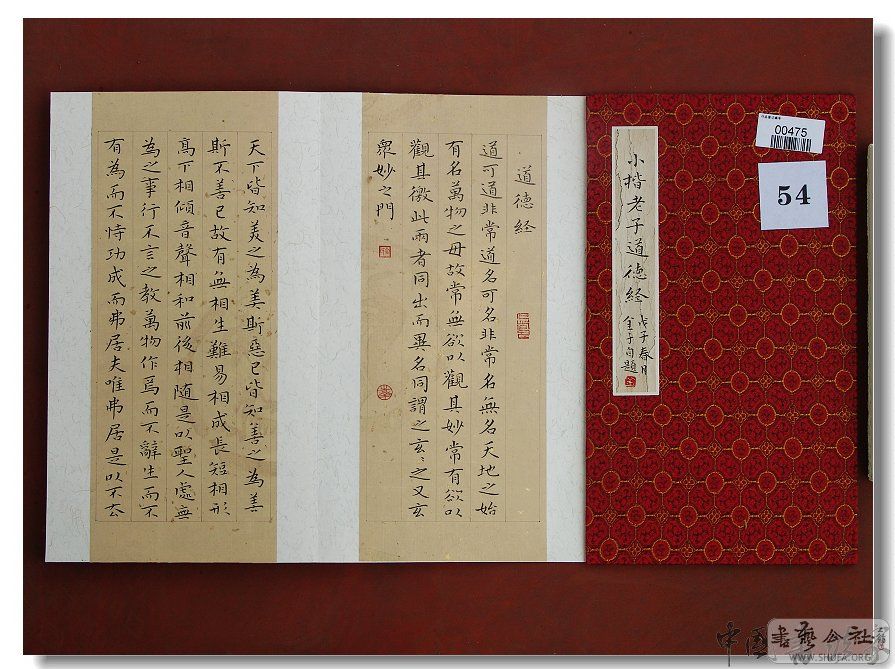 小楷老子道德经
戊子春月
金子自題
00475
54
道德经
道可道非常道名可名非常名無名天地之始
有名萬物之母故常無欲以觀其妙常有欲以
觀其徼此兩者同出而異名同謂之玄〻之又玄
眾妙之門
天下皆知美之為美斯惡已皆知善之為善
斯不善已故有無相生難易相成長短相形
高下相傾音聲相和前後相随是以聖人處無
為之事行不言之教萬物作焉而不辭生而不
有為而不恃功成而弗居夫唯弗居是以不去
中国書藝公社
WWW.SHUFA.ORG